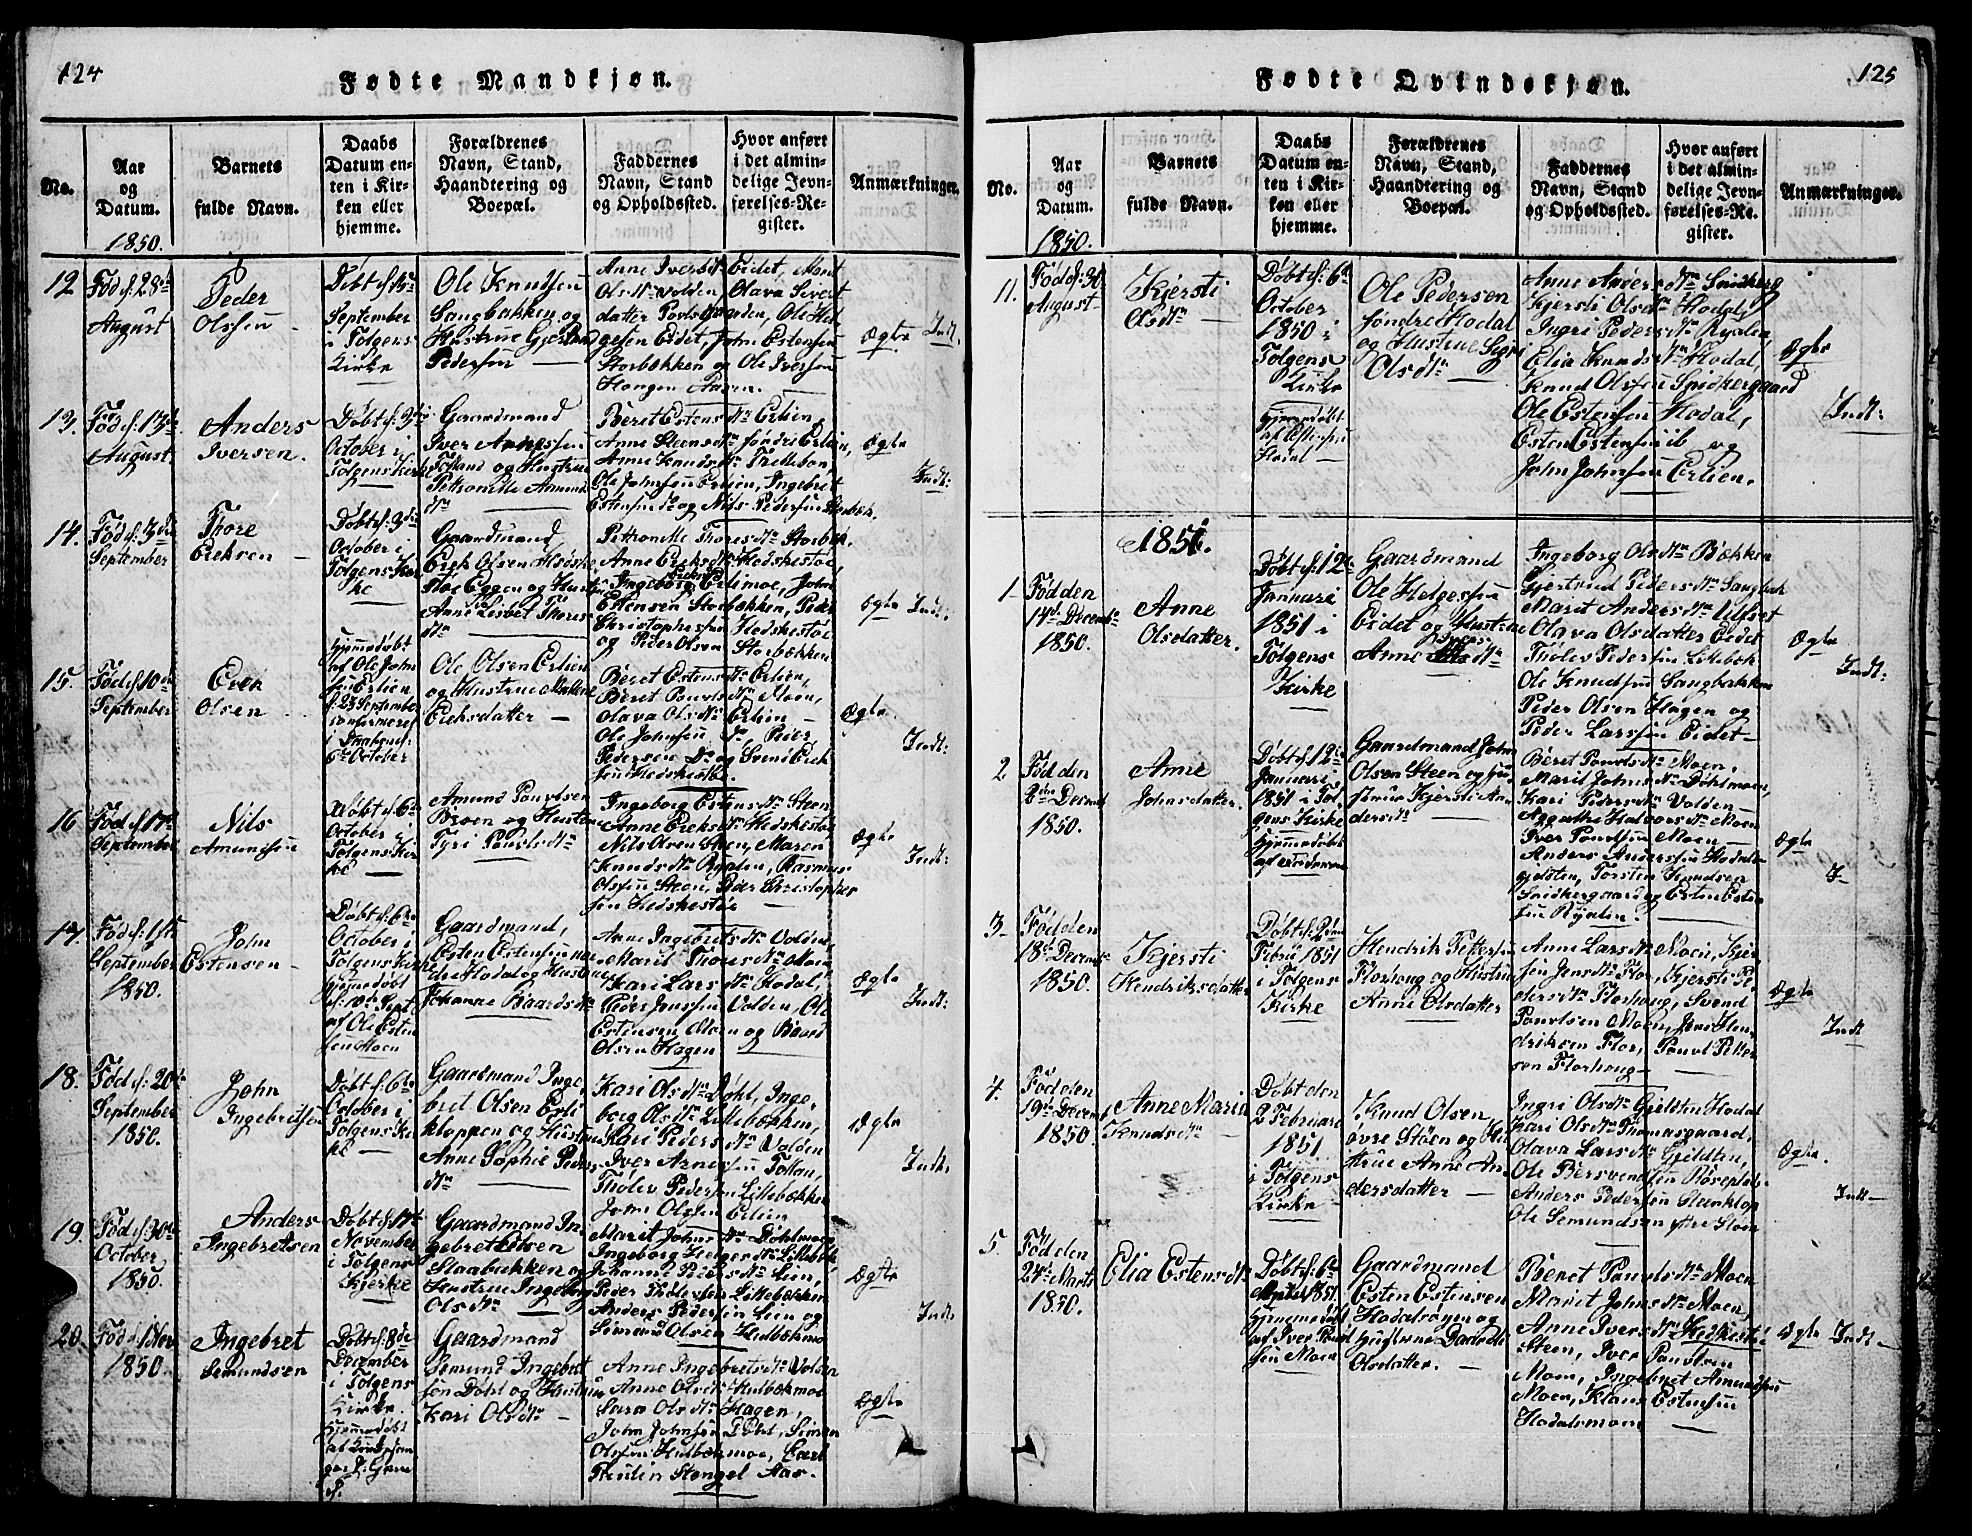 124
Fødte Mandkjøn.
No.
Aar
og
Datum.
1850.
Barnets
fulde Navn.
Daabs
Datum en-
ten i Kir-
ken eller
hjemme.
Forældrenes
Navn, Stand,
Haandtering og
Boepæl.
Faddernes
Navn, Stand
og Opholdssted.
Hvor anført
i det almin-
delige Jevn-
førelses-Re-
gister.
Anmærkninger.
12
Fød d: 28de
August
Peder
Olsen
Døbt d: 15de
September
i Tolgens
Kirke
Ole Knudsen
Langbakken og
Hustrue
Pedersen
Anne Iversdtr Eidet, Marit
Olsdtr Volden, Olava Sivert
datter
gesen Eidet, John Estensen
Storbekken og Ole Iversen
Haugen Aasen.
Ægte
Indt.
13.
Fød d: 13de
August
Anders
Iversen.
Døbt d: 3de
October i
Tolgens Kirke
Gaardmand
Iver Arnesen
Tolland og Hustrue
Petronelle Amund
dtr
Beret Estensdtr Erlien
Anne Steensdtr søndre Erlien,
Anne Knudsdtr Trellebon,
Ole Johnsen Erlien, Ingebret
Estensen do og Nils Pedersen Storbæk.
Ægte
Indt:
14.
Fød d: 3de
September
Thore
Ereksen
Døbt d: 3de
October i
Tolgens Kir
ke
Gaardmand
Erek Olsen Hødske
støe Eggen og Hustrue
Anne Lisbet Thores
dtr
Petronelle Thoresdtr Storbæk.
Anne Ereksdtr Hødskestøe,
Ingeborg Ereksdtr Erlimoe, John
Estensen Storbækken, Peder
Christophersen Hodskestøe
og Peder Olsen Storbækken
Ægte
Indt.
15.
Fød d: 10de
September
Erek
Olsen
hjemmedøbt
af Ole John
sen Erlien
d: 23 September
confirmeret
i Daaben d:
6te October
Ole Olsen Erlien
og Hustrue Malene
Ereksdatter
Beret Estensdtr Erlien,
Beret Pouvlsdtr Moen,
Olava Olsdtr Erlien
Ole Johnsen do, Peder
Pedersen Do og Svend Erek
sen Hødskestøe.
Ægte
Indt:
16
Fød d: 17de
September
Nils
Amundsen
Døbt d: 6te
October i
Tolgens Kir
ke
Amund Pouvlsen
Broen og Hustrue
Tyri Pouvlsdtr
Ingeborg Estensdtr Steen
Anne Ereksdtr Hodskestøe
Nils Olsen Steen, Maren
Knudsdtr Ryalen, Rasmus
Olsen Steen, Peder Christopher
sen Hødskestøe
Ægte
Indt:
17.
Fød d: 1ste
September
1850.
John
Estensen
Døbt d: 6te
October i
Tolgens Kirke
hjemmedøbt
d: 10de Sept
af Ole Esten
sen Moen
Gaardmand,
Esten Estensen ne
dre Hodal og Hustrue
Johanne Baardsdtr
Anne Ingebretsdtr Volden
Marit Thoresdtr Moen
Kari Larsdtr Hodal,
Peder Jonssen Volden, Ole
Estensen Moen og Baard
Olsen Hagen
Ægte
Indt:
18.
Fød d: 20de
September
1850.
John
Ingebretsen
Døbt d: 6te
October i
Tolgens Kir
ke
Gaardmand Inge
bret Olsen Erli
kloppen og Hustrue
Anne Sophie Peders
dtr
Kari Olsdtr Døhl, Inge,
borg Olsdtr Lillebækken,
Kari Pedersdtr Volden
Iver Arnesen Tollan,
Tholev Pedersen Lillebækken
John Olsen Erlien
Ægte
Indt.
19.
Fød d: 30te
October
1850.
Anders
Ingebretsen
Døbt d: 17de
November
i Tolgens
Kjerke
Gaardmand In
gebret Olsen
Staabakken og
Hustrue Ingeborg
Olsdtr
Marit Johnsdtr Døhlmoen
Ingeborg Helgesdtr Lillebæk,
Johanne Pedersdtr Lien,
Peder Tholevsen Lillebækken
Anders Pedersen Lien og
Simund Olsen Hulbækmo
Ægte
Indt:
20.
Fød d: 1 Nov
1850.
Ingebret
Semundsen
Døbt d: 8de
December
i Tolgens
Kirke.
hjemmedøbt
Gaardmand
Semund Ingebret
sen Døhl og Hustrue
Kari Olsdtr
Anne Ingebretsdtr Volden
Anne Olsdtr Hulbækmoe
Sara Olsdtr Hagen,
John Johnsen Døhl, Simen
Olssen Hulbækmoe, Carl
Stengel Aas.
Ægte
125
Fødte Qvindekjøn.
No.
Aar
og
Datum.
1850.
Barnets
fulde Navn.
Daabs
Datum en-
ten i Kir-
ken eller
hjemme.
Forældrenes
Navn, Stand,
Haandtering og
Boepæl.
Faddernes
Navn, Stand
og Opholdssted.
Hvor anført
i det almin-
delige Jevn-
førelses-Re-
gister.
Anmærkninger.
11.
Fød d: 30
August
Kjersti
Olsdtr
Døbt d: 6te
October
1850 i
Tolgens
Kirke
hjemmedøbt
af
Hodal
Ole Pedersen
søndre Hodal
og Hustrue Sigri
Olsdtr
Anne Andersdtr Snidkerg
Kjersti Olsdtr Hodal,
Ingri Pedersdtr Ryalen,
Elia Knudsdtr Hodal,
Knud Olsen Snidkergaard
Ole Estensen Hodal,
Esten Estensen ib og
John Johnsen Erlien.
Ægte
Indt:
1851.
1
Fød den
14de Decembr
1850.
Anne
Olsdatter.
Døbt d: 12te
Januari
1851 i
Tolgens
Kirke
Gaardmand
Ole Helgesen
Eidet og Hustrue
Anne Iversdtr
Ingeborg Olsdtr Bækken
Gjertrud Pedersdtr Langbak
Marit Andersdtr Ulfset
Olava Olsdatter Eidet
Tholev Pedersen Lillebæk
Ole Knudsen Langbakken
Peder Olsen Hagen og
Peder Larssen Eidet
Ægte
Indt:
2
Fød den
8de Decembr
1850.
Anne
Johnsdatter.
Døbt d: 12te
Januari
1851 i Tol
gens Kirke
hjemmedøbt
af Jordemoren
Gaardmand John
Olsen Steen og Hu
strue Kjersti An
dersdtr
Beret Pouvlsdtr Moen,
Marit Johnsdtr Døhlmoen,
Kari Pedersdtr Volden
Aggathe Halvorsdtr Moen
Iver Pouvlsen Moen
Anders Anderssen Hodals
gjelten, Torsten Knudsen
Snidkergaard og Esten Esten
sen Ryalen
Ægte
I
3
Fød den
18de Decembr
1850.
Kjersti
Hendriksdatter
Døbt d: 2den
Febru: 1851
i Tolgens
Kirke
Hendrik Petters
Florhoug og Hustrue
Anne Olsdatter
Anne Larsdtr Moen, Kjer
sti Jensdtr Flor, Kjersti Pe
dersdtr Florhoug, Svend
Pouvlsen Moen, Jens Hen
driksen Flor, Pouvl Petter
sen Florhoug
Ægte
Indt
4.
Fød den
19de Decembr
1850
Anne Marie
Knudsdtr
Døbt den
2 Februari
1851.
i Tolgens
Kirke
Knud Olsen
øvre Støen og Hu
strue Anne An
dersdatter
Ingri Olsdtr Gjelten Hodal
Kari Olsdtr Thomasgaard,
Olava Larsdtr Gjelten,
Ole Bersvendsen Røseplads
Anders Pedersen Steenklop
Ole Semundsen østre Moen
Ægte.
Indt
5.
Fød den
24de Marts
1850.
Elia Estensdtr
Døbt d: 6te
April 1851.
hjemmedøbt
af Iver Pouvl
sen Moen
Gaardmand
Esten Estensen
Hodalsøyen og
Hustrue
Olsdatter.
Beret Pouvlsdtr Moen
Marit Johnsdtr Moen,
Anne Iversdtr
Steen, Iver Pouvlsen
Moen, Ingebret Amundsen
Moen, Klaus Estensen
Hodalsmoen
Ægte
Indt